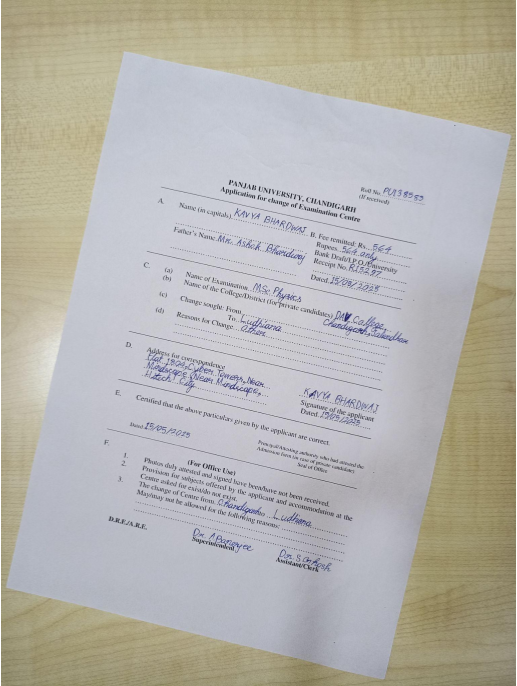 PANJAB UNIVERSITY, CHANDIGARH
Application for change of Examination Centre
Roll No. PU138553
(If received)
A. Name (in capitals) KAVYA BHARDWAJ
Father's Name Mr. Ashok Bhardwaj
B. Fee remitted: Rs. 564
Rupees 564 only
Bank Draft/I.P.O./University
Receipt No. RU3297
Dated 15/05/2025
C. (a) Name of Examination MSc Physics
(b) Name of the College/District (for private candidates) DAV College
Chandigarh, Jalandhar
(c) Change sought: From
To Ludhiana
(d) Reasons for Change Other
D. Address for correspondence
Flat 1802, Cyber Towers, Near
Mindscape (Near Mindcape,
Hitech City
KAVYA BHARDWAJ
Signature of the applicant
Dated 15/05/2025
E. Certified that the above particulars given by the applicant are correct.
Dated 15/05/2025
Principal/Attesting authority who had attested the
Admission form (in case of private candidate)
Seal of Office
F. (For Office Use)
1. Photos duly attested and signed have been/have not been received.
2. Provision for subjects offered by the applicant and accommodation at the
Centre asked for exist/do not exist.
3. The change of Centre from Chandigarh to Ludhiana
May/may not be allowed for the following reasons:
D.R.E./A.R.E.
Dr. A Banerjee
Superintendent
Dr. S Gosh
Assistant/Clerk